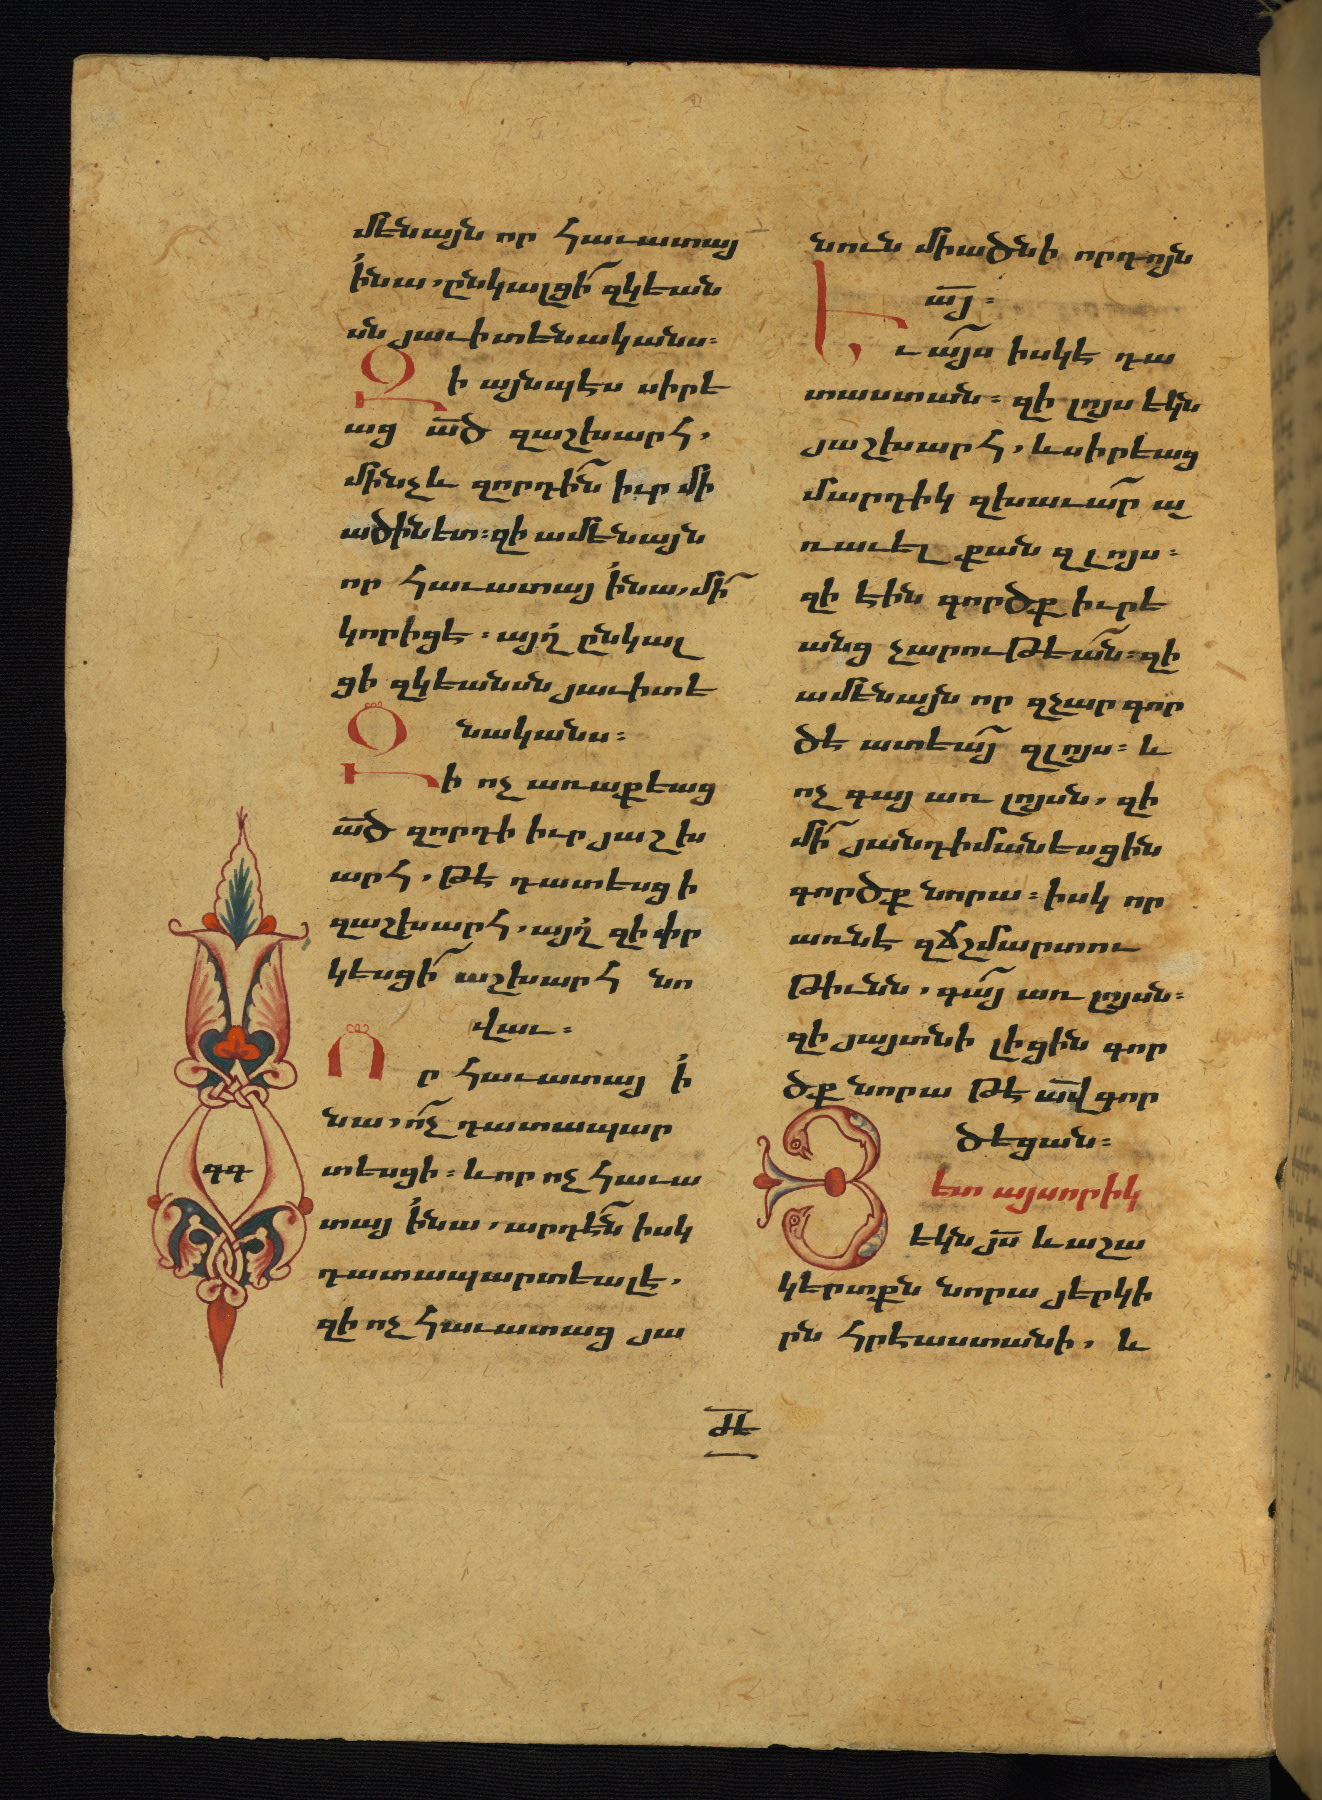 մենայն որ հաւատայ
ի՛նա, ընկալցի՞ զկեան
սն յաւիտենականս։
Զի այնպէս սիրե
աց ա՟ծ զաշխարհ,
մինչև զորդին՞ իւր մի
ածինետ։ զի ամենայն
որ հաւատայ ի՛նա, մի՞
կորիցե։ այղ՛ ընկալ
ցի զկեանսն յաւիտե
նականս։
Զի ոչ առաքեաց
ա՟ծ զորդի իւր յաշխ
արհ, թե դատեսցի
զաշխարհ, այղ՛ զի փր
կեսցի՞ աշխարհ նո
վաւ։
Որ հաւատայ ի՛
նա, ո՞չ դատապար
տեսցի։ և որ ոչ հաւա
տայ ի՛նա, արդէն՞ իսկ
դատապարտեալէ,
զի ոչ հաւատաց յա
գգ
նուն միածնի որդոյն
ա՟յ։
Եւ ա՞յս իսկէ դա
տաստան։ զի լոյս եկն
յաշխարհ, և սիրեաց
մարդիկ զխաւար՞ ա
ռաւել քան զլոյս։
զի էին գործք իւրե
անց չարութեան՞։ զի
ամենայն որ զչար գոր
ծե ատեայ՞ զլոյս։ և
ոչ գայ առ լոյսն, զի
մի՞ յանդիմանեսցին
գործք նորա։ իսկ որ
առնե զճշմարտու
թիւնն, գա՞յ առ լոյսն։
զի յայտնի լիցին գոր
ծք նորա թե ա՟վ գոր
ծեցան։
Յետ այսորիկ
եկն յ՟ս և աշա
կերտքն նորա յերկի
րն հրեաստանի, և
ժե